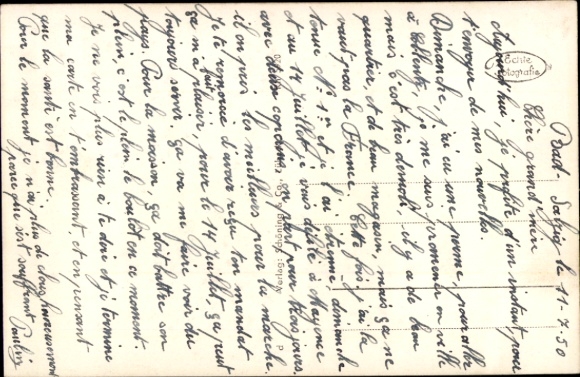 Bad-Salzig le 11-7.50
Chère grand'mère
Aujourd'hui je profite d'un instant pour
t'envoyer de mes nouvelles.
Dimanche j'ai eu une permé, pour aller
à Coblentz, je me suis promener en ville
mais c'est très démoli, il y a de beau
quartier, et de beau magasin, mais ça ne
vaut pas la France. Cette fois j'ai la
tenue N° 1. et je l'ai étrenné dimanche
et au 14 Juillet je vais défilé à Mayence
avec cordons, on part pour trois jours.
il on pris les meilleurs pour la marche.
Je te remercie d'avoir reçu ton mandat
ça m'a fait plaisir, pour le 14 Juillet, ça peut
toujours servir. ça va me faire voir du
pays. Pour la maison, ça doit battre son
plein c'est le plein le boulot en ce moment
Je ne vois plus rien à te dire et je termine
ma carte en t'embrassant et en pensant
que la santé est bonne.
Pour le moment je n'ai plus de clous heureusement
parce que sa fait souffrir Paulin
Echte
Fotografie